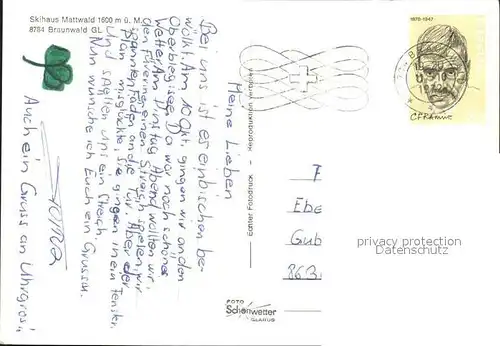 Skihaus Mattwald 1600 m ü. M.
8784 Braunwald GL
Meine Lieben
Bei uns ist es ein bischen be-
wölkt. Am 10 Okt. gingen wir an den
Oberblegisee. Da war noch schönes
Wetter. Am Dinstag Abend wollten wir
den einen Streich spielen, wir
spannten Faden an die Tür. Aber der
Plan missglückte, sie gingen in ein Fenster.
Und spielten uns ein Streich.
Nun wünsche ich Euch ein Gruss
Auch ein Gruss an Uhrgrosi
Echter Fotodruck - Reproduktion verboten
FOTO
Schönwetter
GLARUS
1878-1947
C.F. Ramuz
F
Ebe
Gub
863
privacy protection
Datenschutz